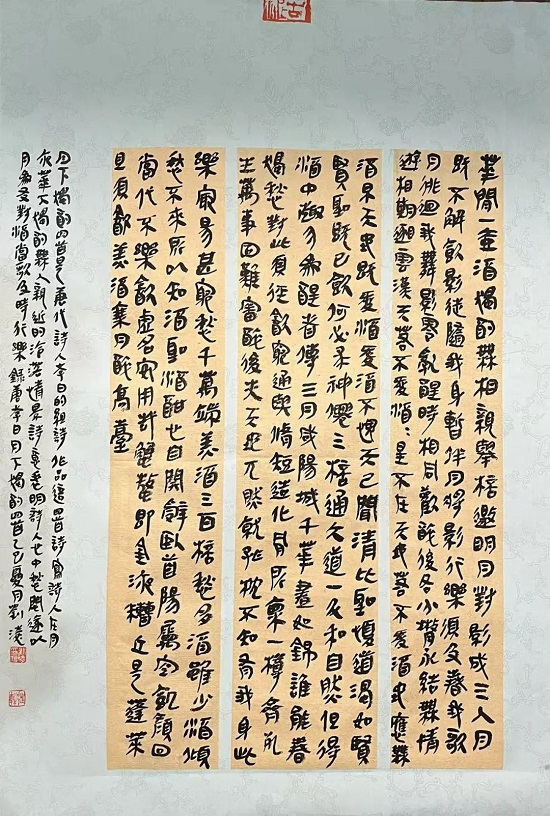 花間一壺酒獨酌無相親舉杯邀明月對影成三人月
既不解飲影徒隨我身暫伴月將影行樂須及春我歌
月徘徊我舞影零亂醒時相同歡醉後各分散永結無情
遊相期邈雲漢天若不愛酒酒星不在天地若不愛酒地應無
酒泉天地既愛酒愛酒不愧天已聞清比聖復道濁如賢
賢聖既已飲何必求神僊三杯通大道一斗合自然但得
酒中趣勿為醒者傳三月咸陽城千花晝如錦誰能春
獨愁對此須徑飲窮通與脩短造化夙所稟一樽齊死
生萬事固難審醉後失天地兀然就孤枕不知有我身此
樂最甚窮愁千萬端美酒三百杯愁多酒雖少酒傾
愁不來所以知酒聖酒酣心自開辭臥首陽屢空飢顏回
當代不樂飲虛名安用哉蟹螯即金液糟丘是蓬萊
且須飲美酒乘月醉高臺
月下獨酌四首是唐代詩人李白的組詩作品這四首詩寫詩人在月
夜華下獨酌無人親近的冷落情景詩意表明詩人心中愁悶遂以
月為友對酒當歌及時行樂錄唐李白月下獨酌四首乙巳夏月劉